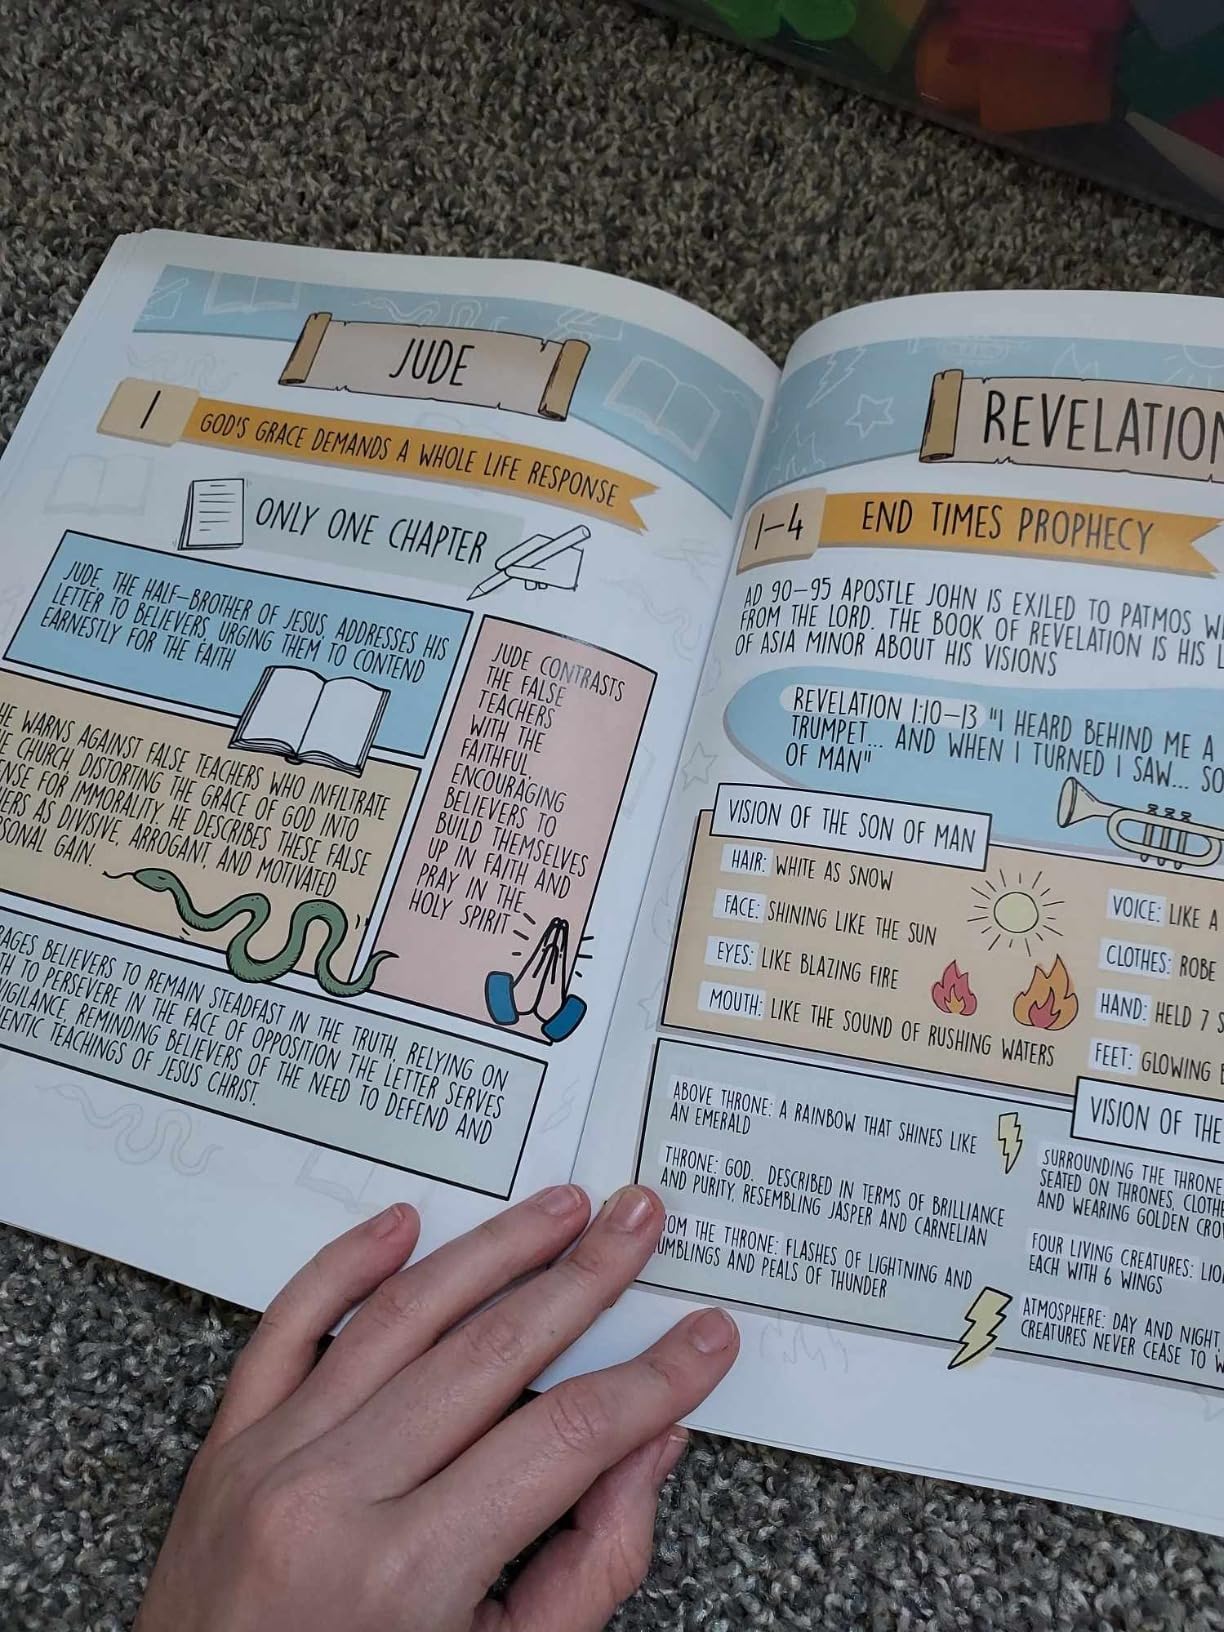 JUDE
1
GOD'S GRACE DEMANDS A WHOLE LIFE RESPONSE
ONLY ONE CHAPTER
JUDE, THE HALF-BROTHER OF JESUS ADDRESSES HIS
LETTER TO BELIEVERS, URGING THEM TO CONTEND
EARNESTLY FOR THE FAITH
HE WARNS AGAINST FALSE TEACHERS WHO INFILTRATE
CHURCH, DISTORTING THE GRACE OF GOD INTO
FOR IMMORALITY. HE DESCRIBES THESE FALSE
AS DIVISIVE, ARROGANT, AND MOTIVATED
GAIN.
JUDE CONTRASTS
THE FALSE
TEACHERS
WITH THE
FAITHFUL,
ENCOURAGING
BELIEVERS TO
BUILD THEMSELVES
UP IN FAITH AND
PRAY IN THE
HOLY SPIRIT
BELIEVERS TO REMAIN STEADFAST IN THE TRUTH, RELYING ON
TO PERSEVERE IN THE FACE OF OPPOSITION THE LETTER SERVES
VIGILANCE, REMINDING BELIEVERS OF THE NEED TO DEFEND AND
TEACHINGS OF JESUS CHRIST.
REVELATION
1-4
END TIMES PROPHECY
AD 90-95 APOSTLE JOHN IS EXILED TO PATMOS
FROM THE LORD. THE BOOK OF REVELATION IS HIS
OF ASIA MINOR ABOUT HIS VISIONS
REVELATION 1:10-13 "I HEARD BEHIND ME A
TRUMPET... AND WHEN I TURNED I SAW...
OF MAN"
VISION OF THE SON OF MAN
HAIR: WHITE AS SNOW
FACE: SHINING LIKE THE SUN
EYES: LIKE BLAZING FIRE
MOUTH: LIKE THE SOUND OF RUSHING WATERS
VOICE: LIKE A
CLOTHES: ROBE
HAND: HELD 7
FEET: GLOWING
VISION OF THE
ABOVE THRONE: A RAINBOW THAT SHINES LIKE
AN EMERALD
THRONE: GOD. DESCRIBED IN TERMS OF BRILLIANCE
AND PURITY, RESEMBLING JASPER AND CARNELIAN
THE THRONE: FLASHES OF LIGHTNING AND
RUMBLINGS AND PEALS OF THUNDER
SURROUNDING THE THRONE
SEATED ON THRONES,
AND WEARING GOLDEN
FOUR LIVING CREATURES:
EACH WITH 6 WINGS
ATMOSPHERE: DAY AND NIGHT,
CREATURES NEVER CEASE TO